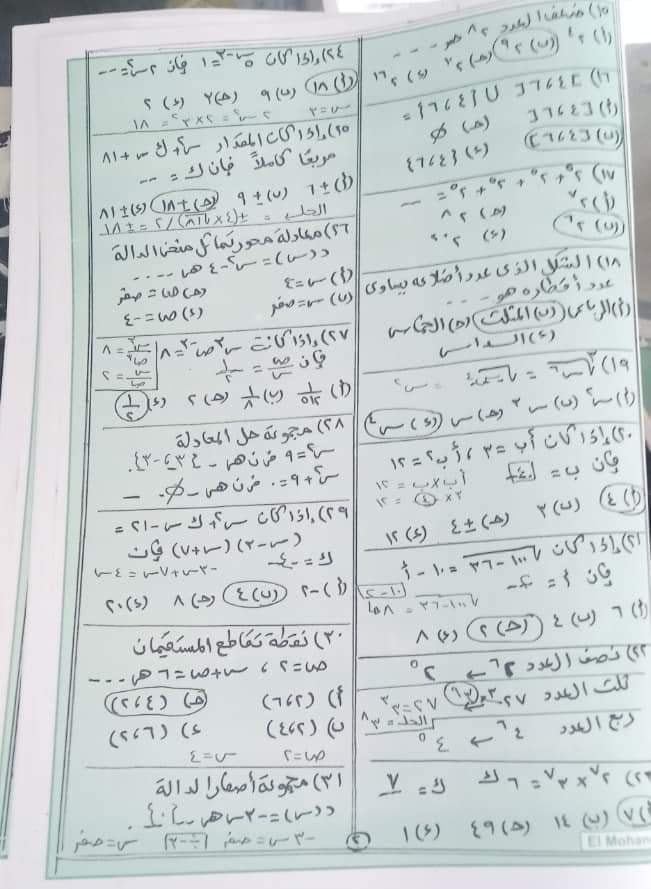 ١٥) ضعف العدد ٢^٨ هو ----
(أ) ٤^٢ (ب) ٢^٩ (ج) ٢^٧ (د) ٢^١٦
١٦) ]٢،٤[ ∪ {٢،٤} =
(أ) [٢،٤[ (ج) ∅
(ب) [٢،٤] (د) {٢،٤}
١٧) ٢^٥ + ٢^٥ + ٢^٥ + ٢^٥ = ---
(أ) ٢^٧ (ج) ٨^٢
(ب) ٢^٦ (د) ٢^٢٠
١٨) الشكل الذي عدد أضلاعه يساوي
عدد أقطاره هو ----
(أ) الرباعي (ب) المثلث (ج) الخماسي
(د) السداسي
(أ) س^٢ (ب) س^٣ (ج) س (د) س^٤
٢٠) إذا كان أب = ٣ ، أب^٢ = ١٢
فإن ب = ٤
أب × ب = ١٢
٣ × ٤ = ١٢
(أ) ٤ (ب) ٢ (ج) ±٤ (د) ١٢
٢١) إذا كان √١٠٠-٣٦ = ١٠ - أ
فإن أ = ٢
(أ) ٦ (ب) ٤ (ج) ٢ (د) ٨
٢٢) نصف العدد ٢^٦ ← ٢^٥
ثلث العدد ٢٧
٢٧ = ٣^٣
ربع العدد ٤^٦ ← ٤^٥
٢٣) ٢^٧ × ٣^٧ = ٦^ك ك = ٧
(أ) ٧ (ب) ١٤ (ج) ٤٩ (د) ١
El Mohan
٢
٢٤) إذا كان ٥^س-٣ = ١ فإن ٢س^٢ = ---
(أ) ١٨ (ب) ٩ (ج) ٣ (د) ٢
س = ٣ ٢س^٢ = ٢×٣^٢ = ١٨
٢٥) إذا كان المقدار س^٢ + ك س + ٨١
مربعًا كاملًا فإن ك = ---
(أ) ±٦ (ب) ±٩ (ج) ±١٨ (د) ±٨١
٢٦) معادلة محور تماثل منحنى الدالة
د(س) = س^٢ - ٤ هي ----
(أ) س = ٤ (ج) ص = صفر
(ب) س = صفر (د) ص = -٤
٢٧) إذا كانت س^٣ ص^-٣ = ٨
فإن ص/س = ١/٢
س^٣/ص^٣ = ٨
س/ص = ٢
(أ) ١/٥١٢ (ب) ١/٨ (ج) ٢ (د) ١/٢
٢٨) مجموعة حل المعادلة
س^٢ = ٩ في ح هي {٣، -٣}
س^٢ + ٩ = ٠ في ح هي ∅
٢٩) إذا كان س^٢ + ك س - ٢١ =
(س - ٣)(س + ٧) فإن
ك = ٤
-٣س + ٧س = ٤س
(أ) -٢ (ب) ٤ (ج) ٨ (د) ٢٠
٣٠) نقطة تقاطع المستقيمان
ص = ٢ ، س + ص = ٦ هي ----
(أ) (٢،٦) (ج) (٤،٢)
(ب) (٢،٤) (د) (٦،٢)
ص = ٢ س = ٤
٣١) مجموعة أصفار الدالة
د(س) = -٣س هي {٠}
-٣س = صفر [÷-٣] س = صفر